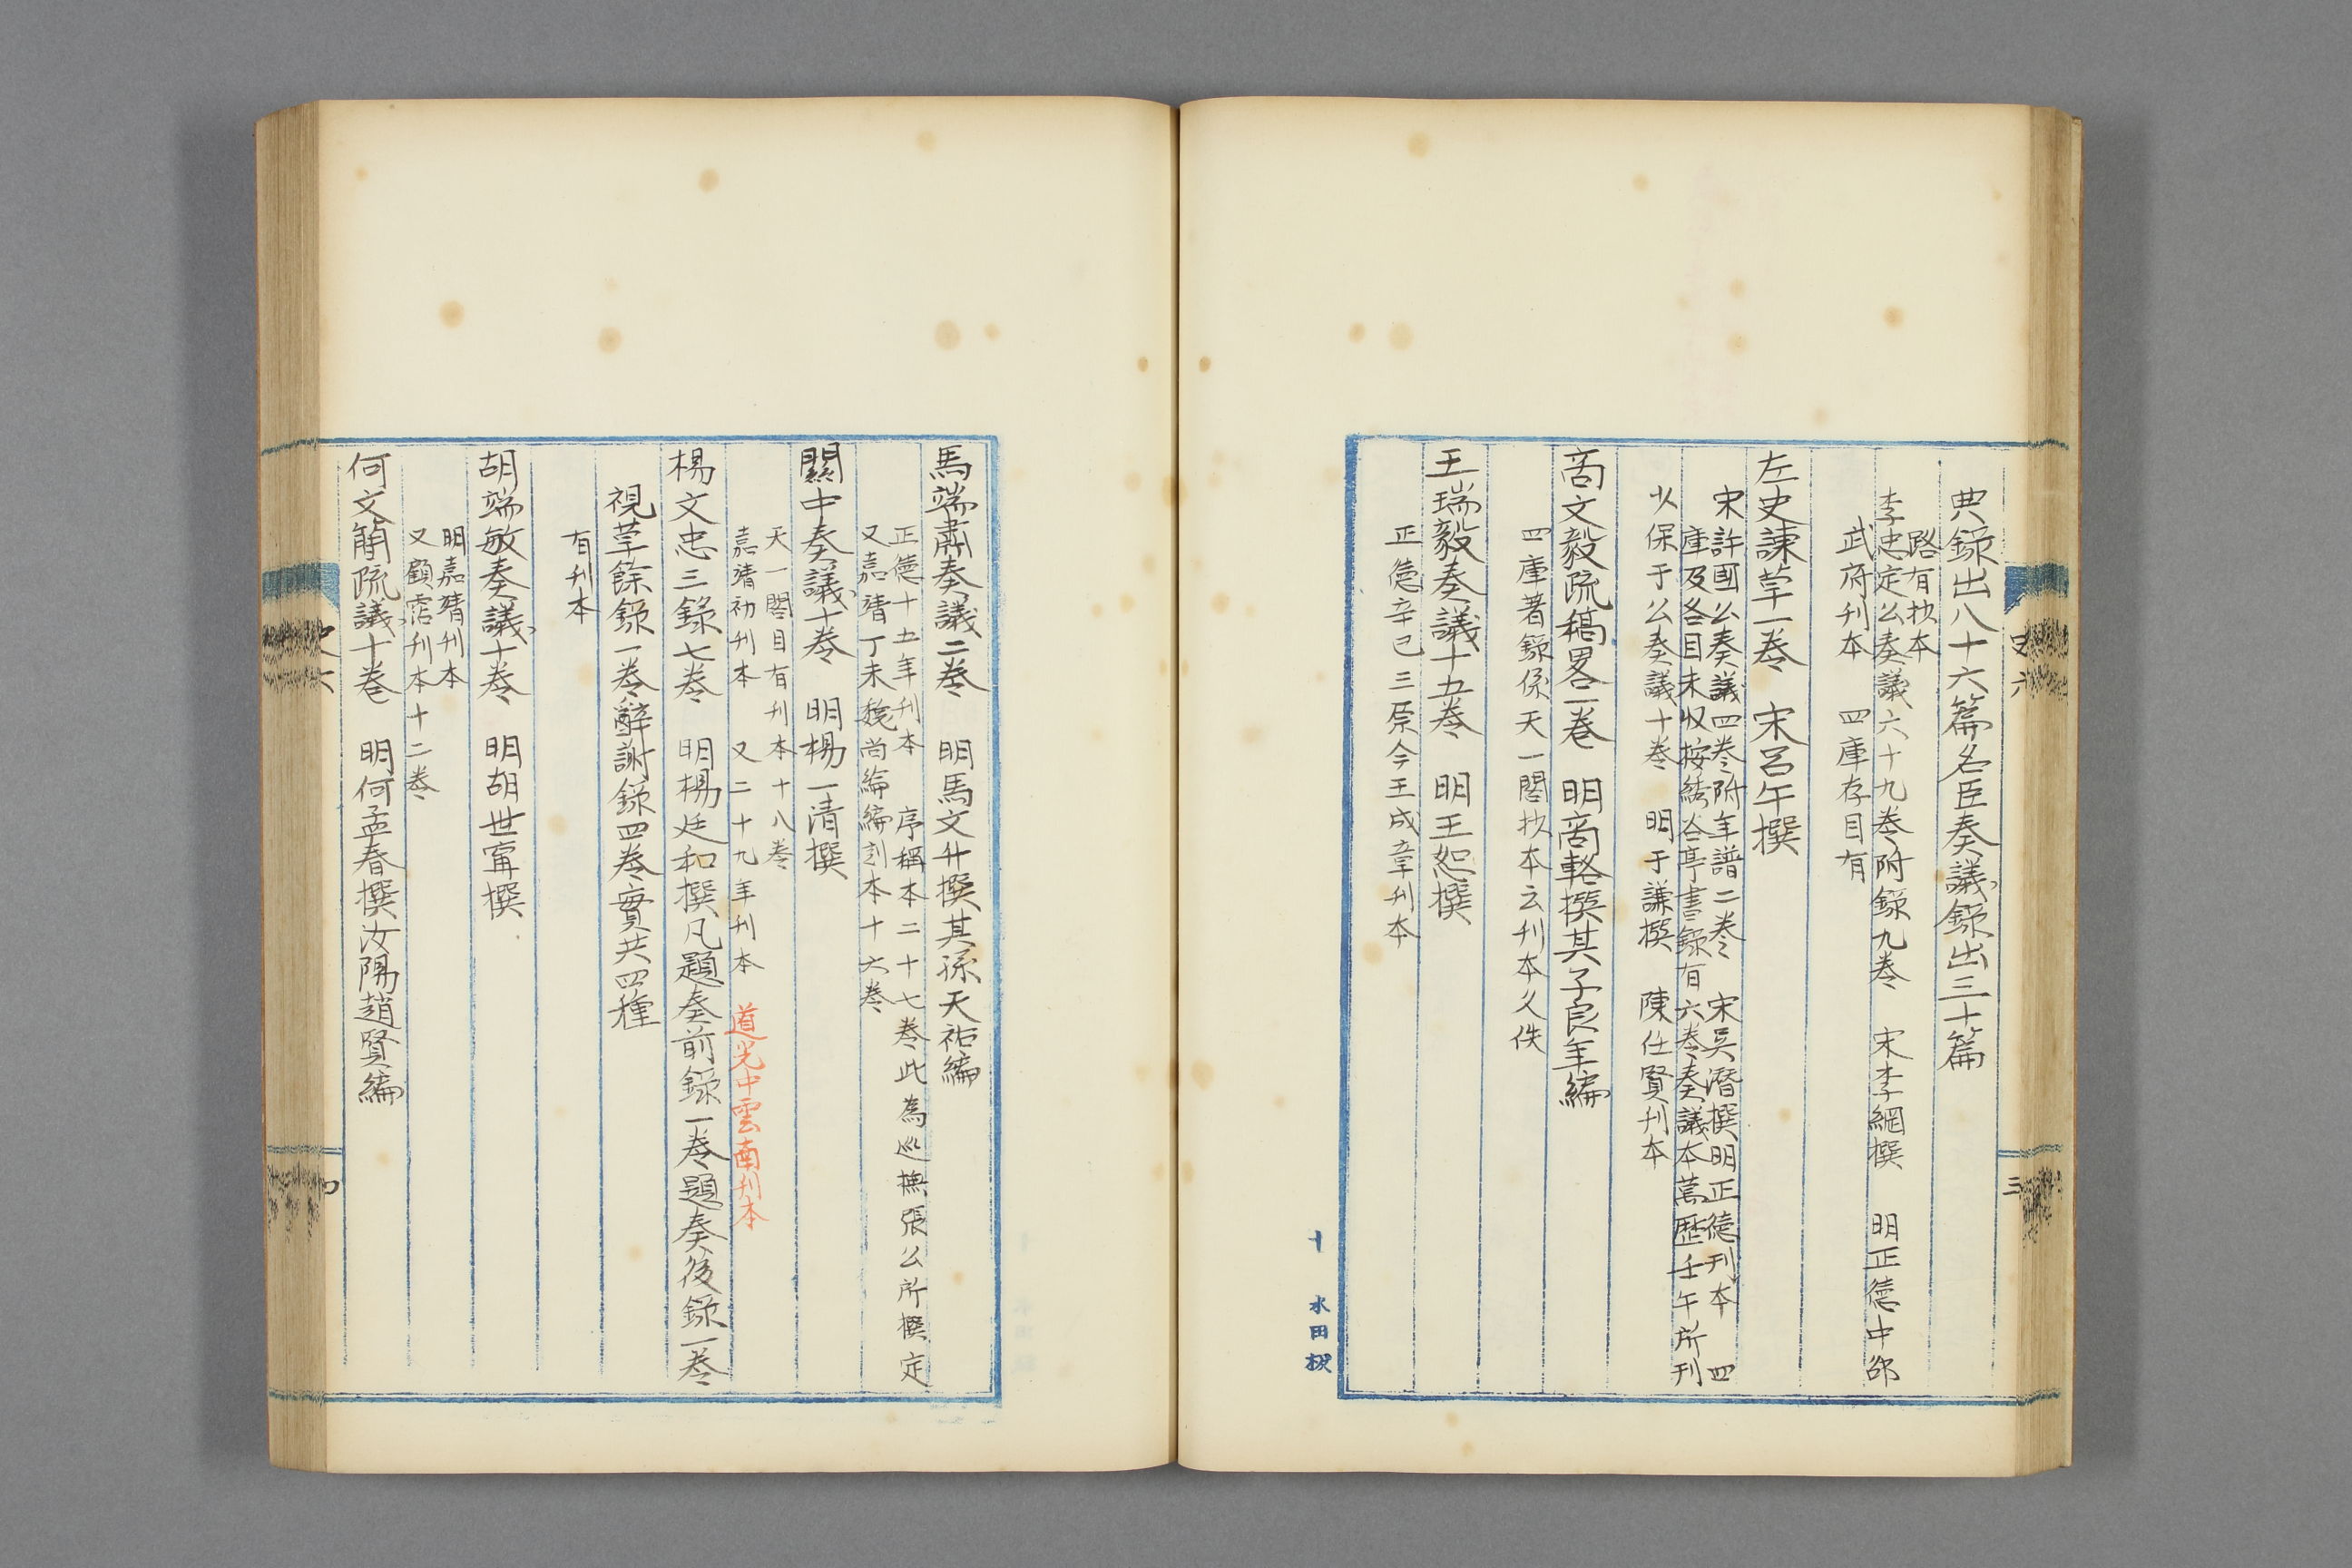 典錄出八十六篇名臣奏議錄出三十篇
路有抄本
李忠定公奏議六十九卷附錄九卷　宋李綱撰　明正德中邵
武府刊本　四庫存目有
左史諫草一卷　宋呂午撰
宋許國公奏議四卷附年譜二卷　宋吳潛撰明正德刊本　四
庫及各目未收按結亝亭書錄有六卷奏議本萬歷壬午所刊
少保于公奏議十卷　明于謙撰　陳仕賢刊本
商文毅疏稿畧一卷　明商輅撰其子良年編
四庫著錄係天一閣抄本云刊本久佚
王瑞毅奏議十五卷　明王恕撰
正德辛巳三原令王成章刊本
史六
三
十
水田
馬端肅奏議二卷　明馬文升撰其孫天祐編
正德十五年刊本　序稱本二十七卷此為巡撫張公所撰定
又嘉靖丁未魏尚綸編刻本十六卷
關中奏議十卷　明楊一清撰
天一閣目有刊本十八卷
嘉靖初刊本　又二十九年刊本　道光中雲南刊本
楊文忠三錄七卷　明楊廷和撰凡題奏前錄一卷題奏後錄一卷
視草餘錄一卷辭謝錄四卷實共四種
有刊本
胡端敏奏議十卷　明胡世寧撰
明嘉靖刊本
又顧霑刊本十二卷
何文簡疏議十卷　明何孟春撰汝陽趙賢編
史六